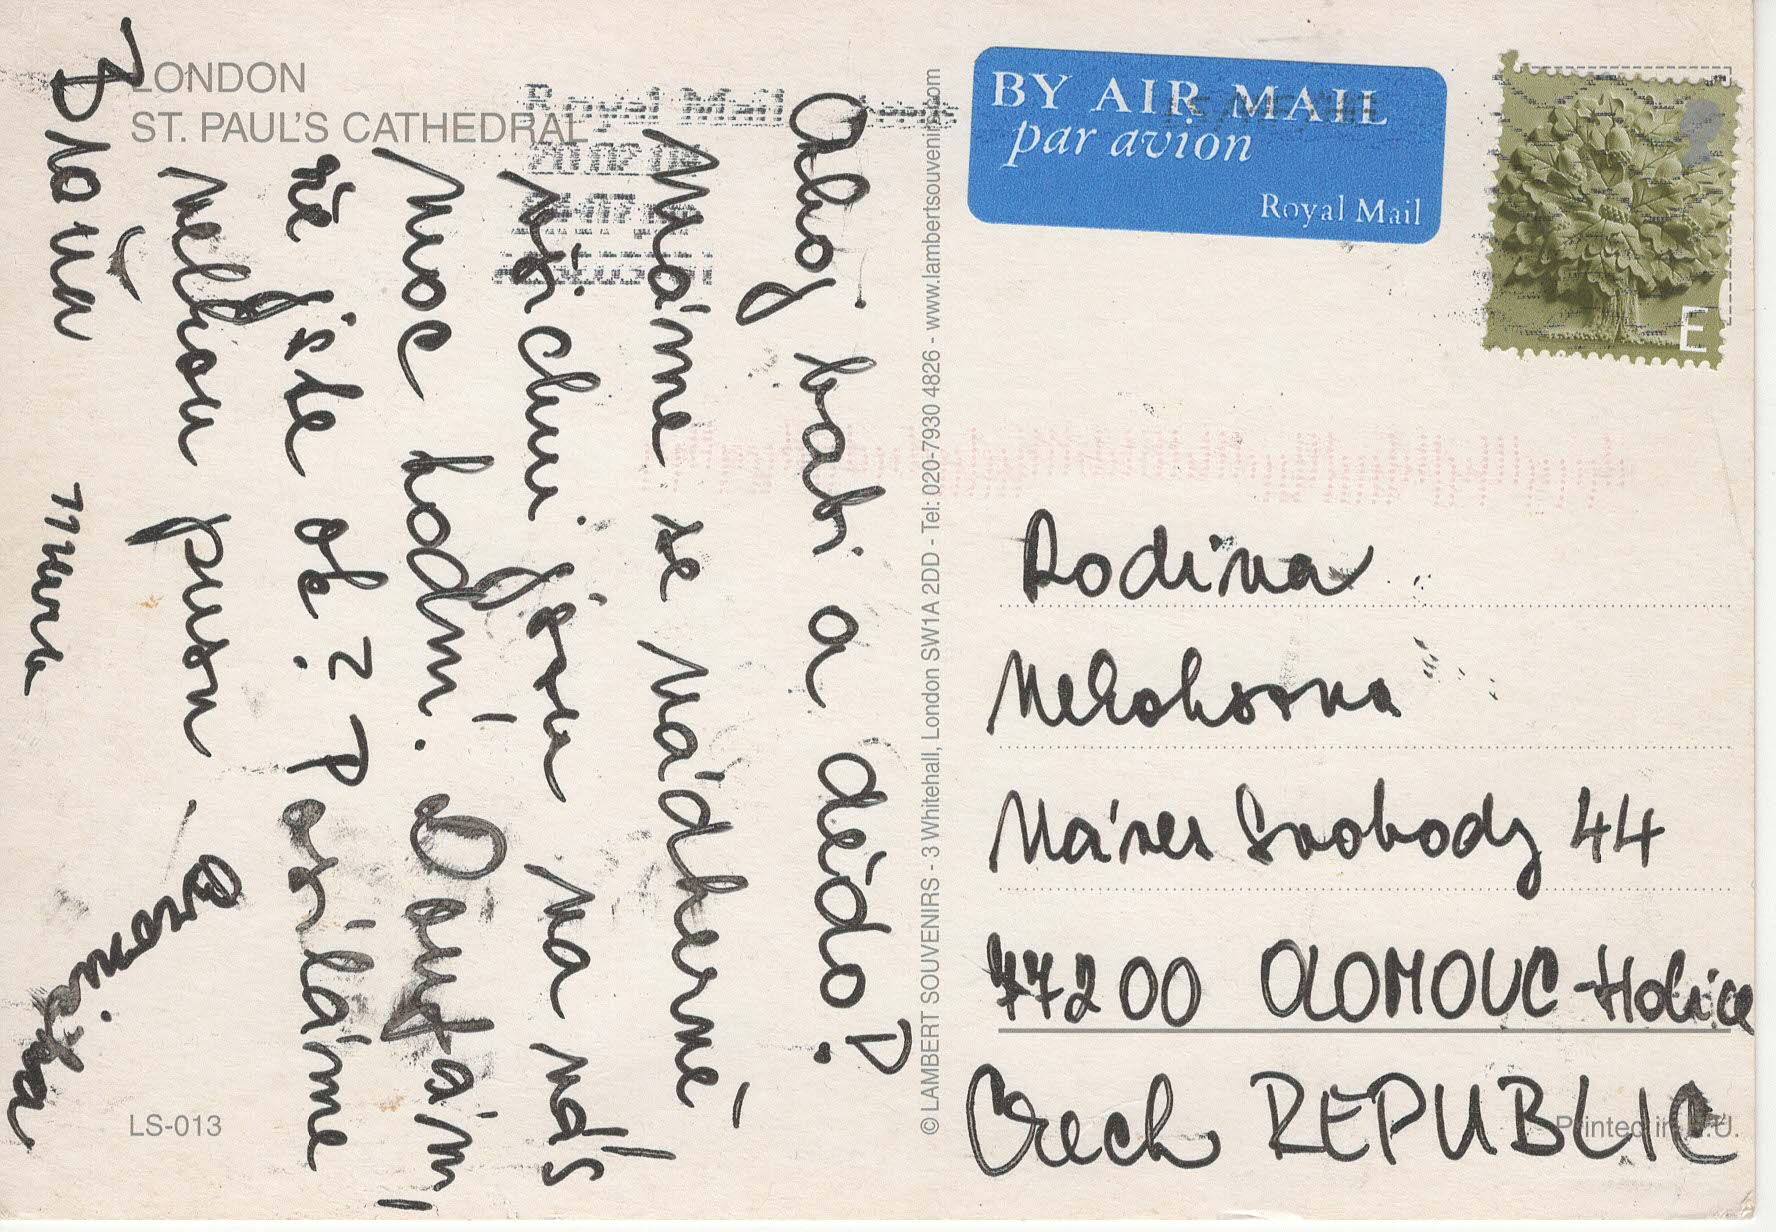 LONDON
ST. PAUL'S CATHEDRAL
Royal Mail
Ahoj babi a dědo!
Máme se nádherně
všichni jsou na nás
moc hodní. Doufám,
že jste ok? Posíláme
velkou pusu.
LS-013
© LAMBERT SOUVENIRS - 3 Whitehall, London SW1A 2DD - Tel: 020-7930 4826 - www.lambertsouvenir.com
BY AIR MAIL
par avion
Royal Mail
E
Rodina
Náves Svobody 44
77200 OLOMOUC-Holice
Czech REPUBLIC
Printed in E.U.